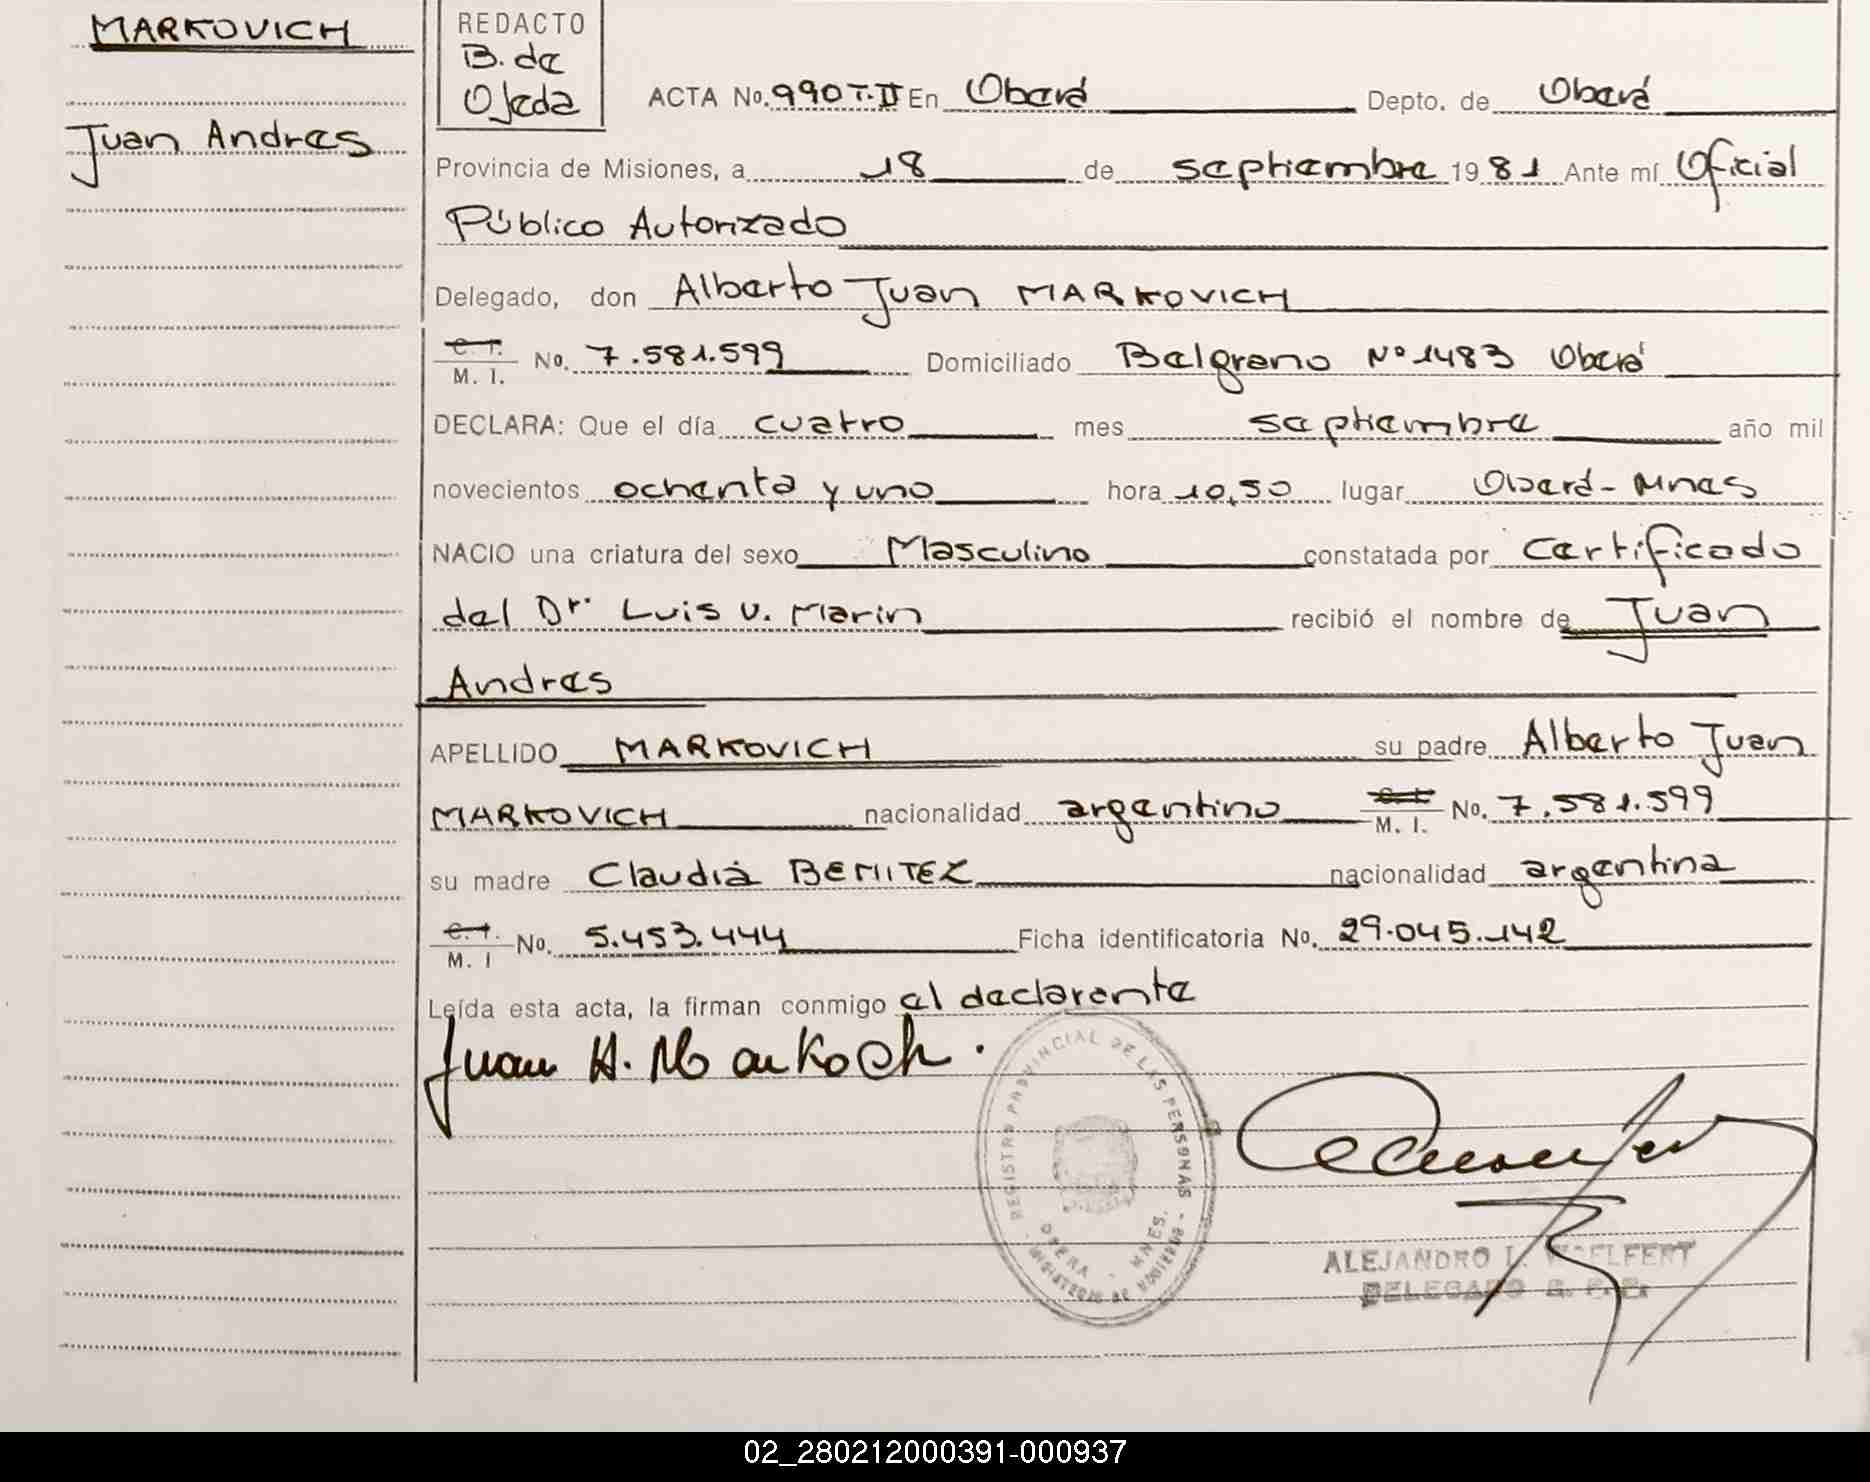 MARKOVICH
Juan Andres
REDACTO
B. de
Ojeda
ACTA No. 990 T.II En Oberá Depto. de Oberá
Provincia de Misiones, a 18 de septiembre 1981 Ante mí Oficial
Público Autorizado
Delegado, don Alberto Juan MARKOVICH
C. I.
M. I. No. 7.581.599 Domiciliado Belgrano Nº 1483 Oberá
DECLARA: Que el día cuatro mes septiembre año mil
novecientos ochenta y uno hora 10,50 lugar Oberá - Mnes
NACIO una criatura del sexo Masculino constatada por Certificado
del Dr. Luis V. Marin recibió el nombre de Juan
Andres
APELLIDO MARKOVICH su padre Alberto Juan
MARKOVICH nacionalidad argentino C. I.
M. I. No. 7.581.599
su madre Claudia BENITEZ nacionalidad argentina
C. I.
M. I No. 5.453.444 Ficha identificatoria No. 29.045.142
Leída esta acta, la firman conmigo el declarante
Juan A. Markoch.
REGISTRO PROVINCIAL DE LAS PERSONAS
OBERA - MNES.
MINISTERIO DE GOBIERNO
ALEJANDRO L. WOELFERT
DELEGADO
02_280212000391-000937